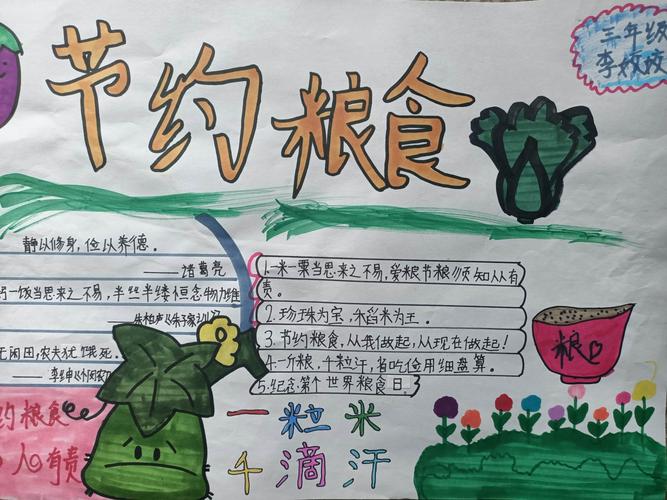 节约粮食
三年级
李姣姣
静以修身,俭以养德。
——诸葛亮
一饭当思来之不易,半丝半缕恒念物力维
——朱柏庐《朱子家训》
无闲田,农夫犹饿死。
——李绅《悯农》
约粮食
人人有责
1.一米一粟当思来之不易,爱粮节粮须知从有
责。
2.珍珠为宝,米稻米为王。
3.节约粮食,从我做起,从现在做起!
4.一斤粮,千粒汗,省吃俭用细盘算。
5.纪念第个世界粮食日
粮
一粒米
千滴汗